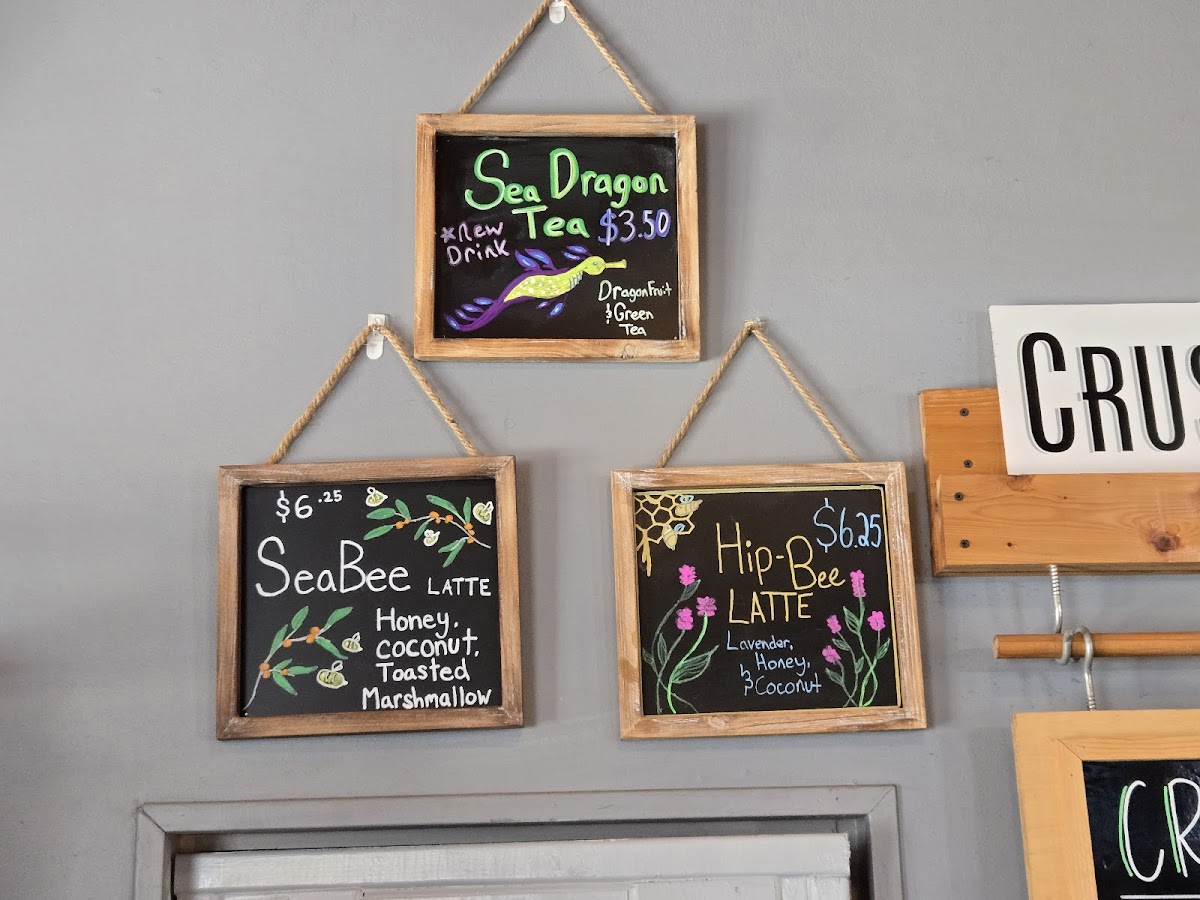 Sea Dragon
Tea $3.50
*New
Drink
DragonFruit
& Green
Tea
$6.25
SeaBee LATTE
Honey,
coconut,
Toasted
Marshmallow
$6.25
Hip-Bee
LATTE
Lavender,
Honey,
& Coconut
CRUS
CR